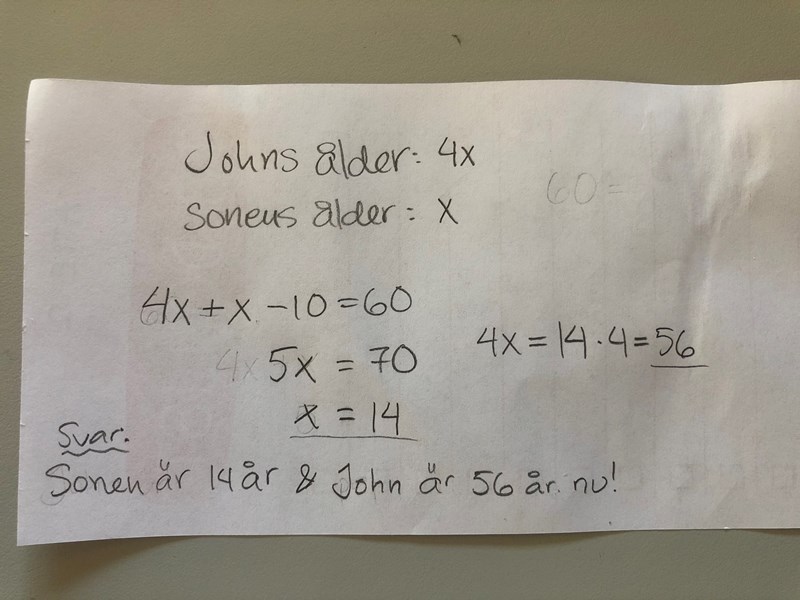 Johns ålder: 4x
60=
Sonens ålder: x
4x+x-10=60
5x = 70
4x = 14·4=56
x = 14
Svar.
Sonen är 14 år & John är 56 år nu!